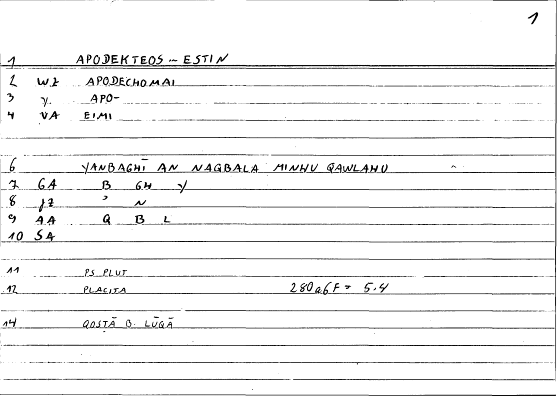 1
1 APODEKTEOS – ESTIN
2 WZ APODECHOMAI
3 y. APO-
4 VA EIMI
6 YANBAGHĪ AN NAQBALA MINHU QAWLAHU
7 GA B GH Y
8 JZ ' N
9 AA Q B L
10 SA
11 PS PLUT
12 PLACITA 280a6F = 5.4
14 QOSTĀ B. LŪQĀ